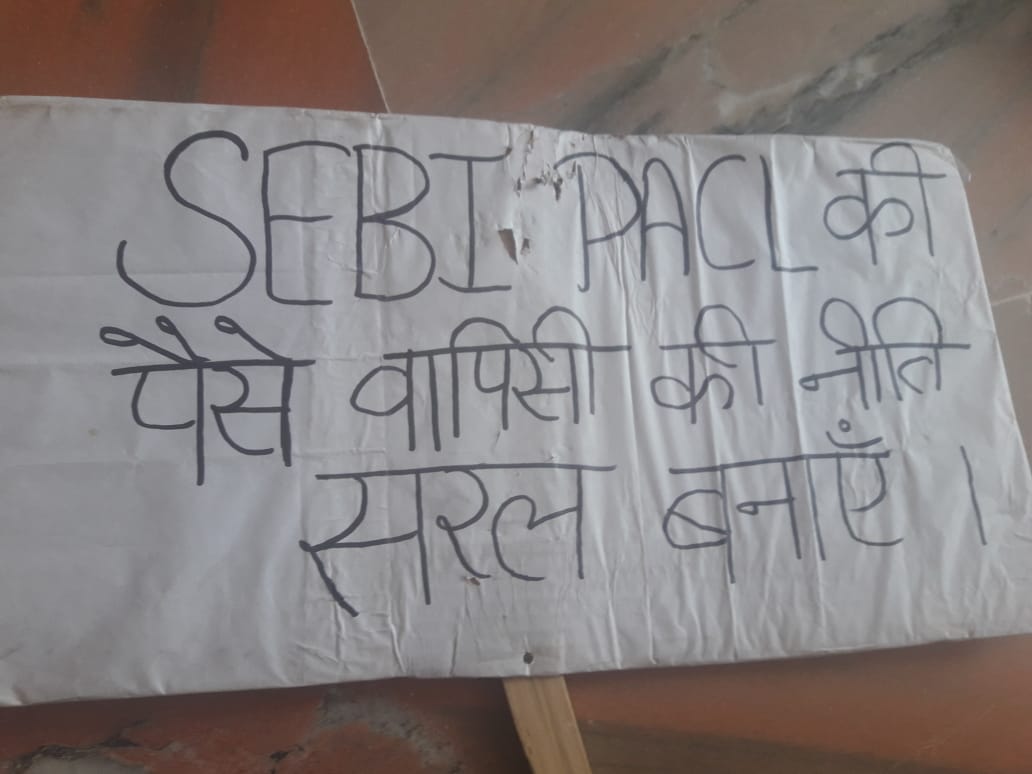 SEBI PACL की
पैसे वापिसी की नीति
सरल बनाएँ ।